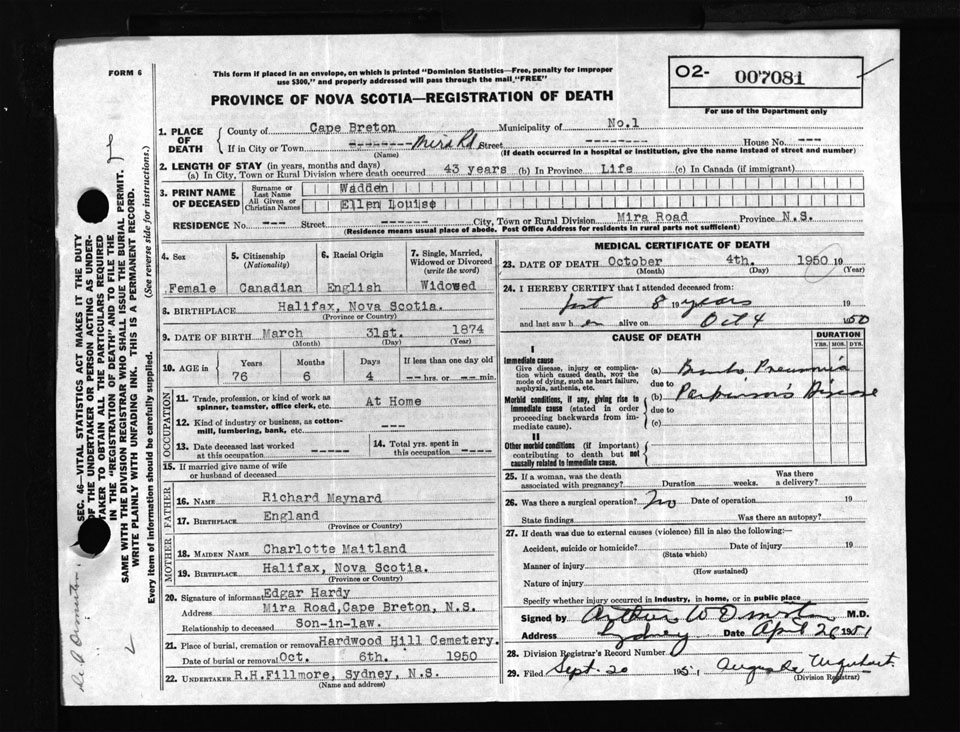 FORM 6
This form if placed in an envelope, on which is printed "Dominion Statistics—Free, penalty for improper
use $300," and properly addressed will pass through the mail "FREE"
O2- 007081
For use of the Department only
PROVINCE OF NOVA SCOTIA—REGISTRATION OF DEATH
1. PLACE OF DEATH
County of Cape Breton Municipality of No.1
If in City or Town -------- Mira Rd. Street -------- House No. ---
(Name) (If death occurred in a hospital or institution, give the name instead of street and number)
2. LENGTH OF STAY (in years, months and days)
(a) In City, Town or Rural Division where death occurred 43 years (b) In Province Life (c) In Canada (if immigrant)
3. PRINT NAME OF DECEASED
Surname or Last Name Wadden
All Given or Christian Names Ellen Louise
RESIDENCE No. --- Street --- City, Town or Rural Division Mira Road Province N.S.
(Residence means usual place of abode. Post Office Address for residents in rural parts not sufficient)
4. Sex
Female
5. Citizenship (Nationality)
Canadian
6. Racial Origin
English
7. Single, Married, Widowed or Divorced (write the word)
Widowed
8. BIRTHPLACE Halifax, Nova Scotia.
(Province or Country)
9. DATE OF BIRTH March 31st. 1874
(Month) (Day) (Year)
10. AGE in
Years Months Days If less than one day old
76 6 4 -- hrs. or -- min.
OCCUPATION
11. Trade, profession, or kind of work as
spinner, teamster, office clerk, etc. At Home
12. Kind of industry or business, as cotton-
mill, lumbering, bank, etc. ---
13. Date deceased last worked
at this occupation -----
14. Total yrs. spent in
this occupation -----
15. If married give name of wife
or husband of deceased
FATHER
16. NAME Richard Maynard
17. BIRTHPLACE England
(Province or Country)
MOTHER
18. MAIDEN NAME Charlotte Maitland
19. BIRTHPLACE Halifax, Nova Scotia.
(Province or Country)
20. Signature of informant Edgar Hardy
Address Mira Road, Cape Breton, N.S.
Relationship to deceased Son-in-law.
21. Place of burial, cremation or removal Hardwood Hill Cemetery.
Date of burial or removal Oct. 6th. 1950
22. UNDERTAKER R.H.Fillmore, Sydney, N.S.
(Name and address)
MEDICAL CERTIFICATE OF DEATH
23. DATE OF DEATH October 4th. 1950 19
(Month) (Day) (Year)
24. I HEREBY CERTIFY that I attended deceased from:
8 19 years 19
and last saw h er alive on Oct 4 1950
CAUSE OF DEATH
DURATION
YRS. MOS. DYS.
I
Immediate cause
Give disease, injury or complica-
tion which caused death, NOT the
mode of dying, such as heart failure,
asphyxia, asthenia, etc.
(a) Broncho Pneumonia
due to
Morbid conditions, if any, giving rise to
immediate cause (stated in order
proceeding backwards from im-
mediate cause).
(b) Parkinson's Disease
due to
(c)
II
Other morbid conditions (if important)
contributing to death but not
causally related to immediate cause.
25. If a woman, was the death
associated with pregnancy? Duration weeks. Was there
a delivery?
26. Was there a surgical operation? No Date of operation 19
State findings Was there an autopsy?
27. If death was due to external causes (violence) fill in also the following:—
Accident, suicide or homicide? Date of injury 19
(State which)
Manner of injury
(How sustained)
Nature of injury
Specify whether injury occurred in industry, in home, or in public place
Signed by Arthur W Ormiston M.D.
Address Sydney Date April 26 1951
28. Division Registrar's Record Number
29. Filed Sept. 20 1951 Urquhart.
(Division Registrar)
SEC. 46—VITAL STATISTICS ACT MAKES IT THE DUTY
OF THE UNDERTAKER OR PERSON ACTING AS UNDER-
TAKER TO OBTAIN ALL THE PARTICULARS REQUIRED
IN THE "REGISTRATION OF DEATH" AND TO FILE THE
SAME WITH THE DIVISION REGISTRAR WHO SHALL ISSUE THE BURIAL PERMIT.
WRITE PLAINLY WITH UNFADING INK. THIS IS A PERMANENT RECORD.
Every item of information should be carefully supplied. (See reverse side for instructions.)